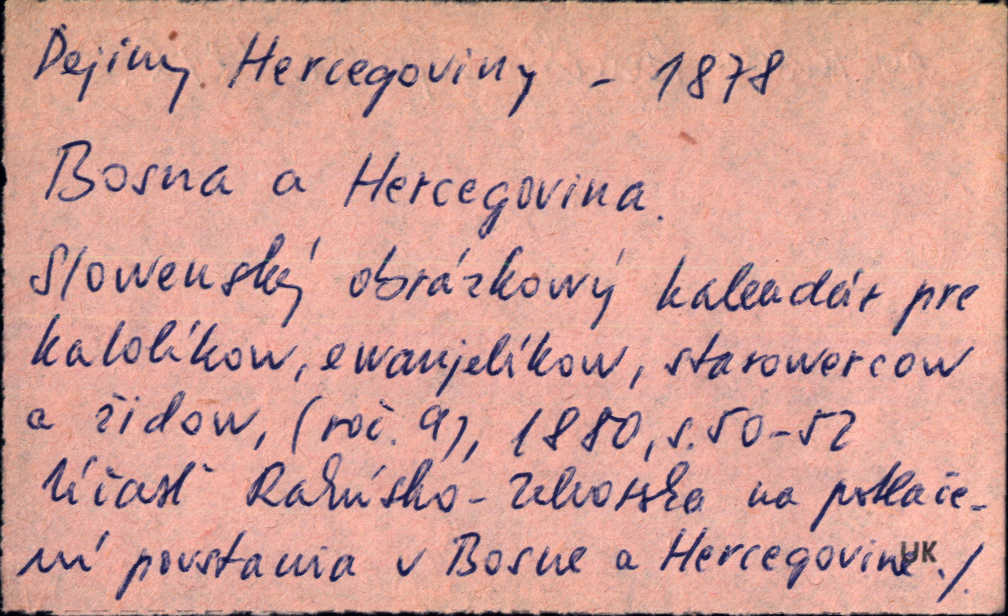 Dejiny Hercegoviny - 1878
Bosna a Hercegovina.
Slowenský obrázkowý kalendár pre
katolíkow, ewanjelikow, starowercow
a židow, (roč. 9), 1880, s. 50-52
Účasť Rakúsko-Uhorska na potlače-
ní povstania v Bosne a Hercegovine./
UK